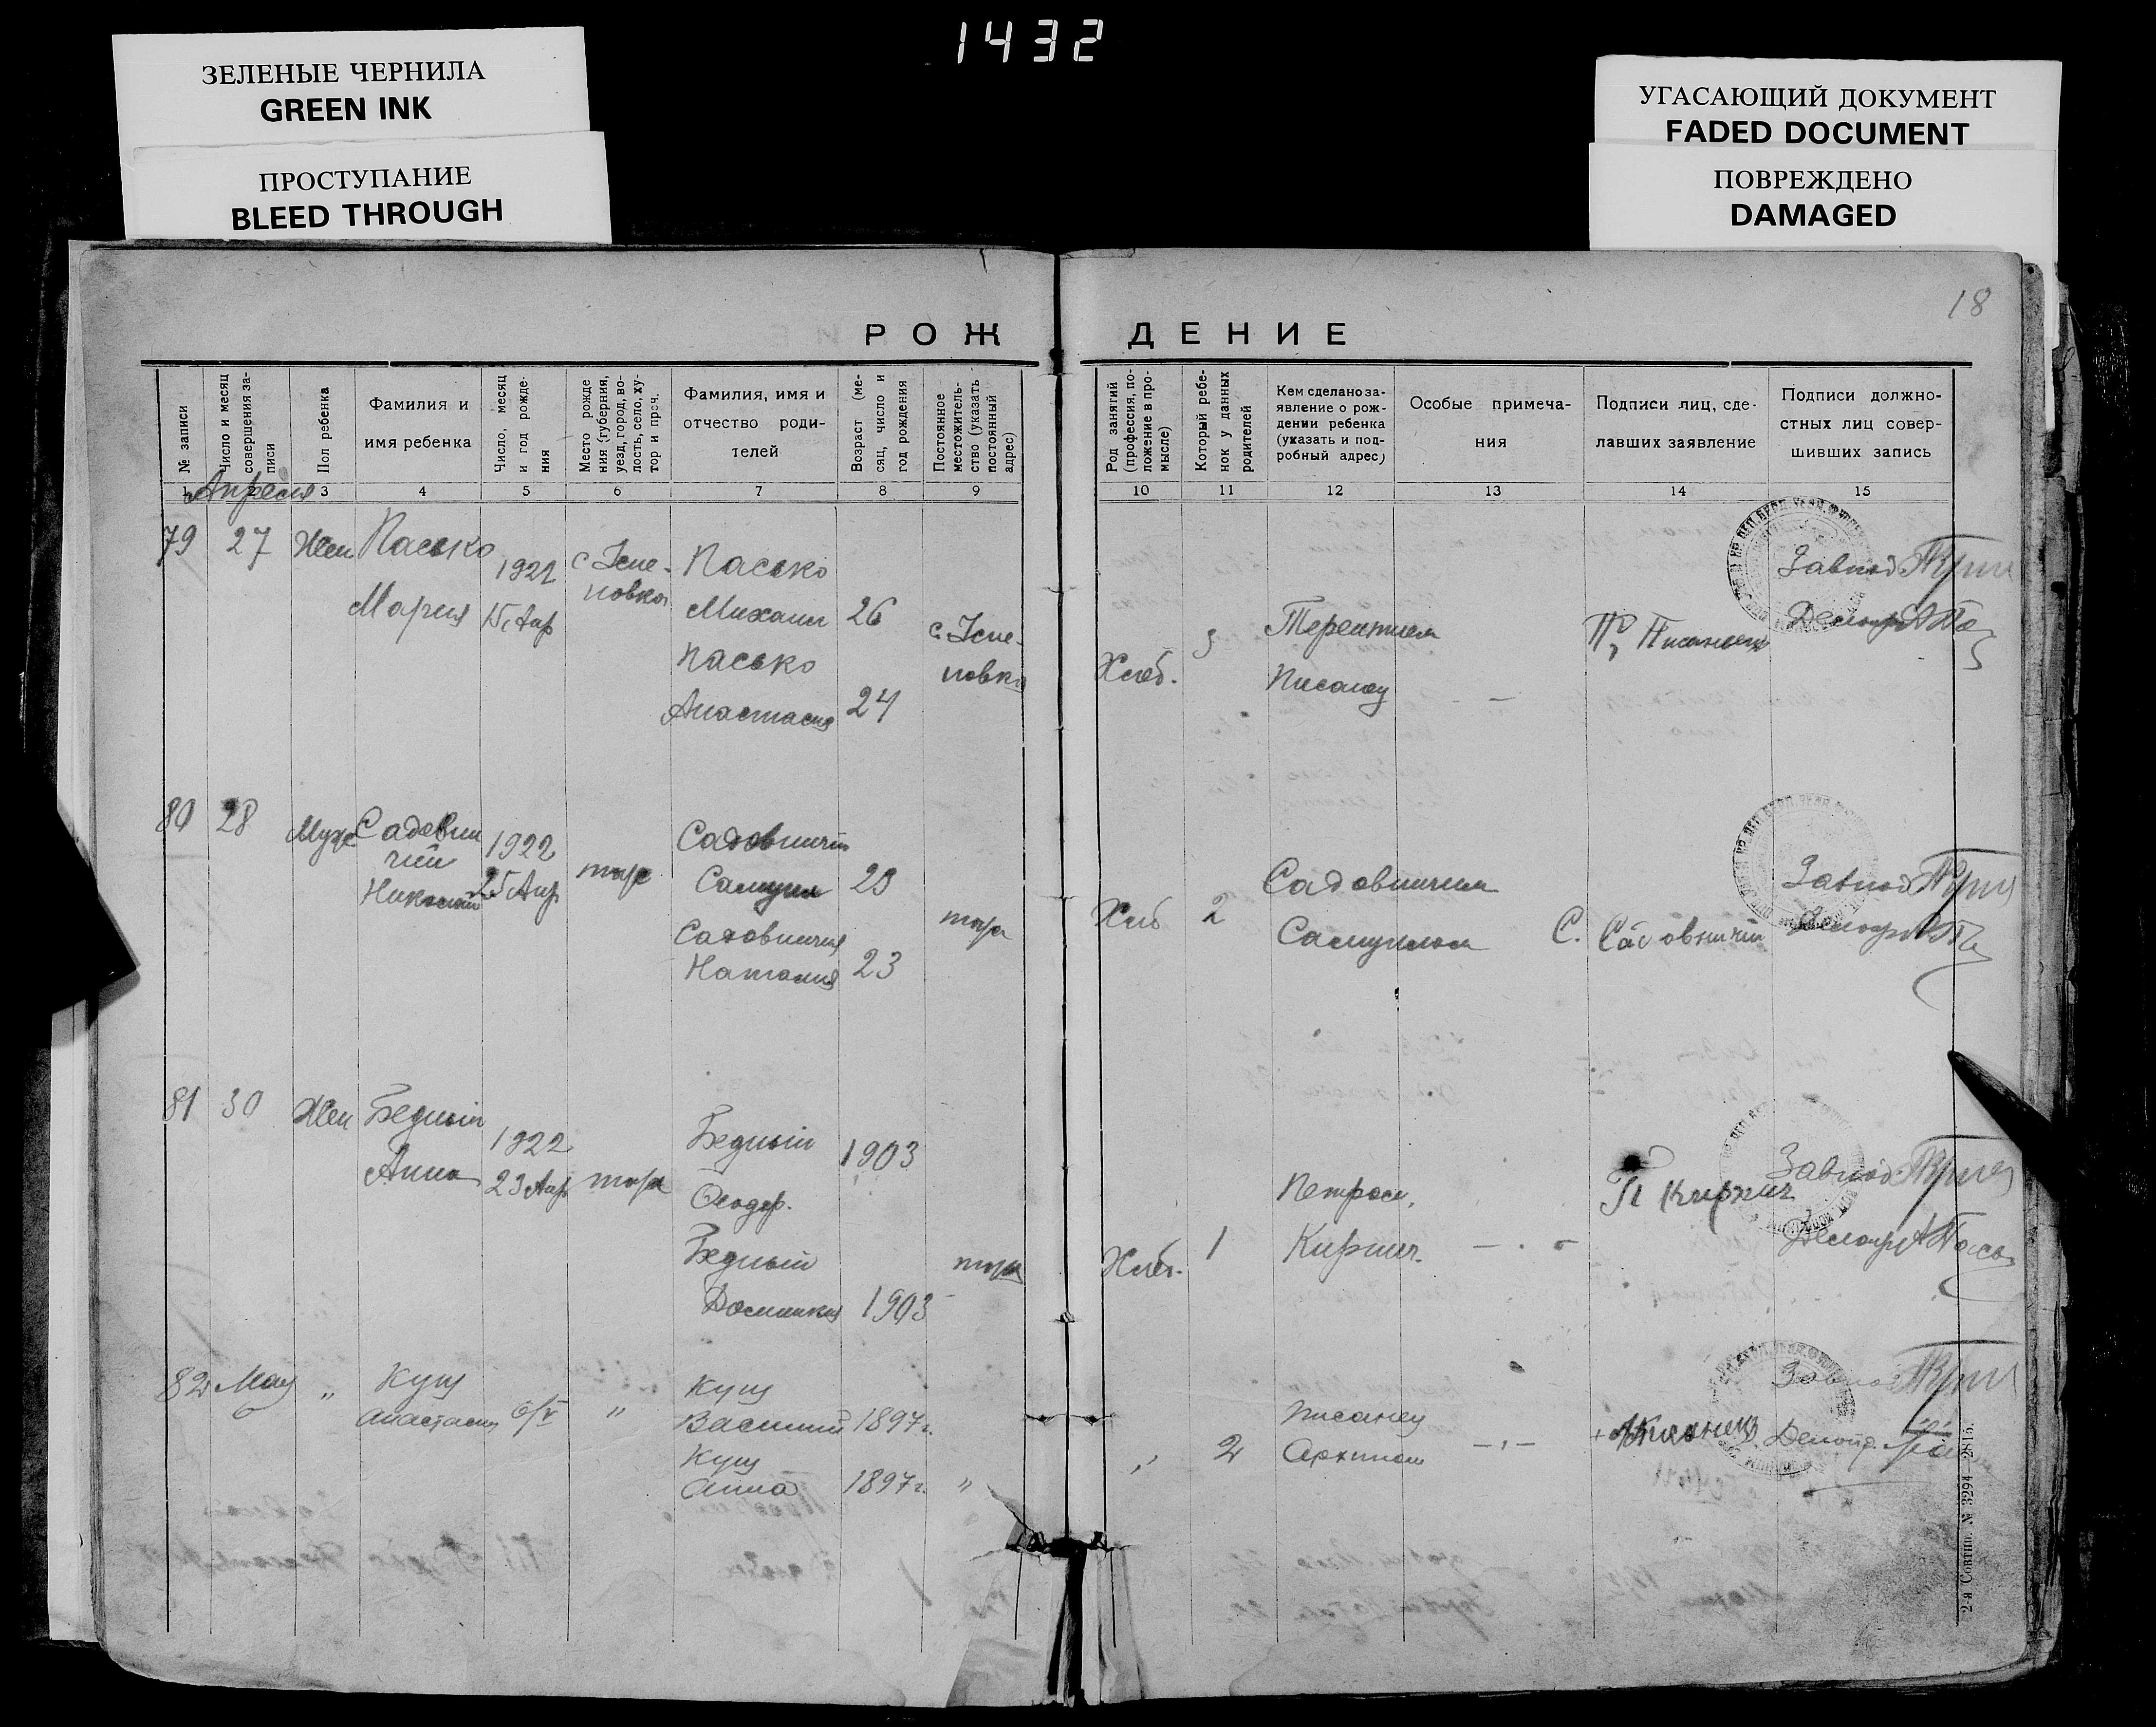 1432
ЗЕЛЕНЫЕ ЧЕРНИЛА
GREEN INK
ПРОСТУПАНИЕ
BLEED THROUGH
УГАСАЮЩИЙ ДОКУМЕНТ
FADED DOCUMENT
ПОВРЕЖДЕНО
DAMAGED
18
РОЖДЕНИЕ
№ записи
Число и месяц
совершения за-
писи
Пол ребенка
Фамилия и
имя ребенка
Число, месяц
и год рожде-
ния
Место рожде
ния (губерния,
уезд, город, во-
лость, село, ху-
тор и проч.
Фамилия, имя и
отчество роди-
телей
Возраст (ме-
сяц, число и
год рождения
Постоянное
местожитель-
ство (указать
постоянный
адрес)
Род занятий
(профессия, по-
ложение в про-
мысле)
Который ребе-
нок у данных
родителей
Кем сделано за-
явление о рож-
дении ребенка
(указать и под-
робный адрес)
Особые примеча-
ния
Подписи лиц, сде-
лавших заявление
Подписи должно-
стных лиц совер-
шивших запись
1 2 3 4 5 6 7 8 9 10 11 12 13 14 15
Апреля
79 27 Жен Пасько
Мария
1922
15 Апр
Пасько
Михаил 26
Пасько
Анастасия 24
Хлеб.
Терентием
Писанец
Завпод
Делопр
80 28 Муж Садовни
чий
Николай
1922
25 Апр
тоже
Садовничий
Самуил 23
Садовничия
Наталия 23
тоже
Хлеб 2
Садовничим
Самуилом
С. Садовничий
Завпод
Делопр
81 30 Жен Бедный
Анна
1922
23 Апр
тоже
Бедный 1903
Феодор.
Бедный
Домникия 1903
тоже
Хлеб. 1
Петром
Кирпич.
П Кирпич
Завпод
Делопр
82 Мая 6 „ Кущ
Анастасия 6/V „
Кущ
Василий 1897г.
Кущ
Анна 1897г. „
„ 2
Писанец
Архипом
Делопр.
2-я Совтип. № 3294—2815.